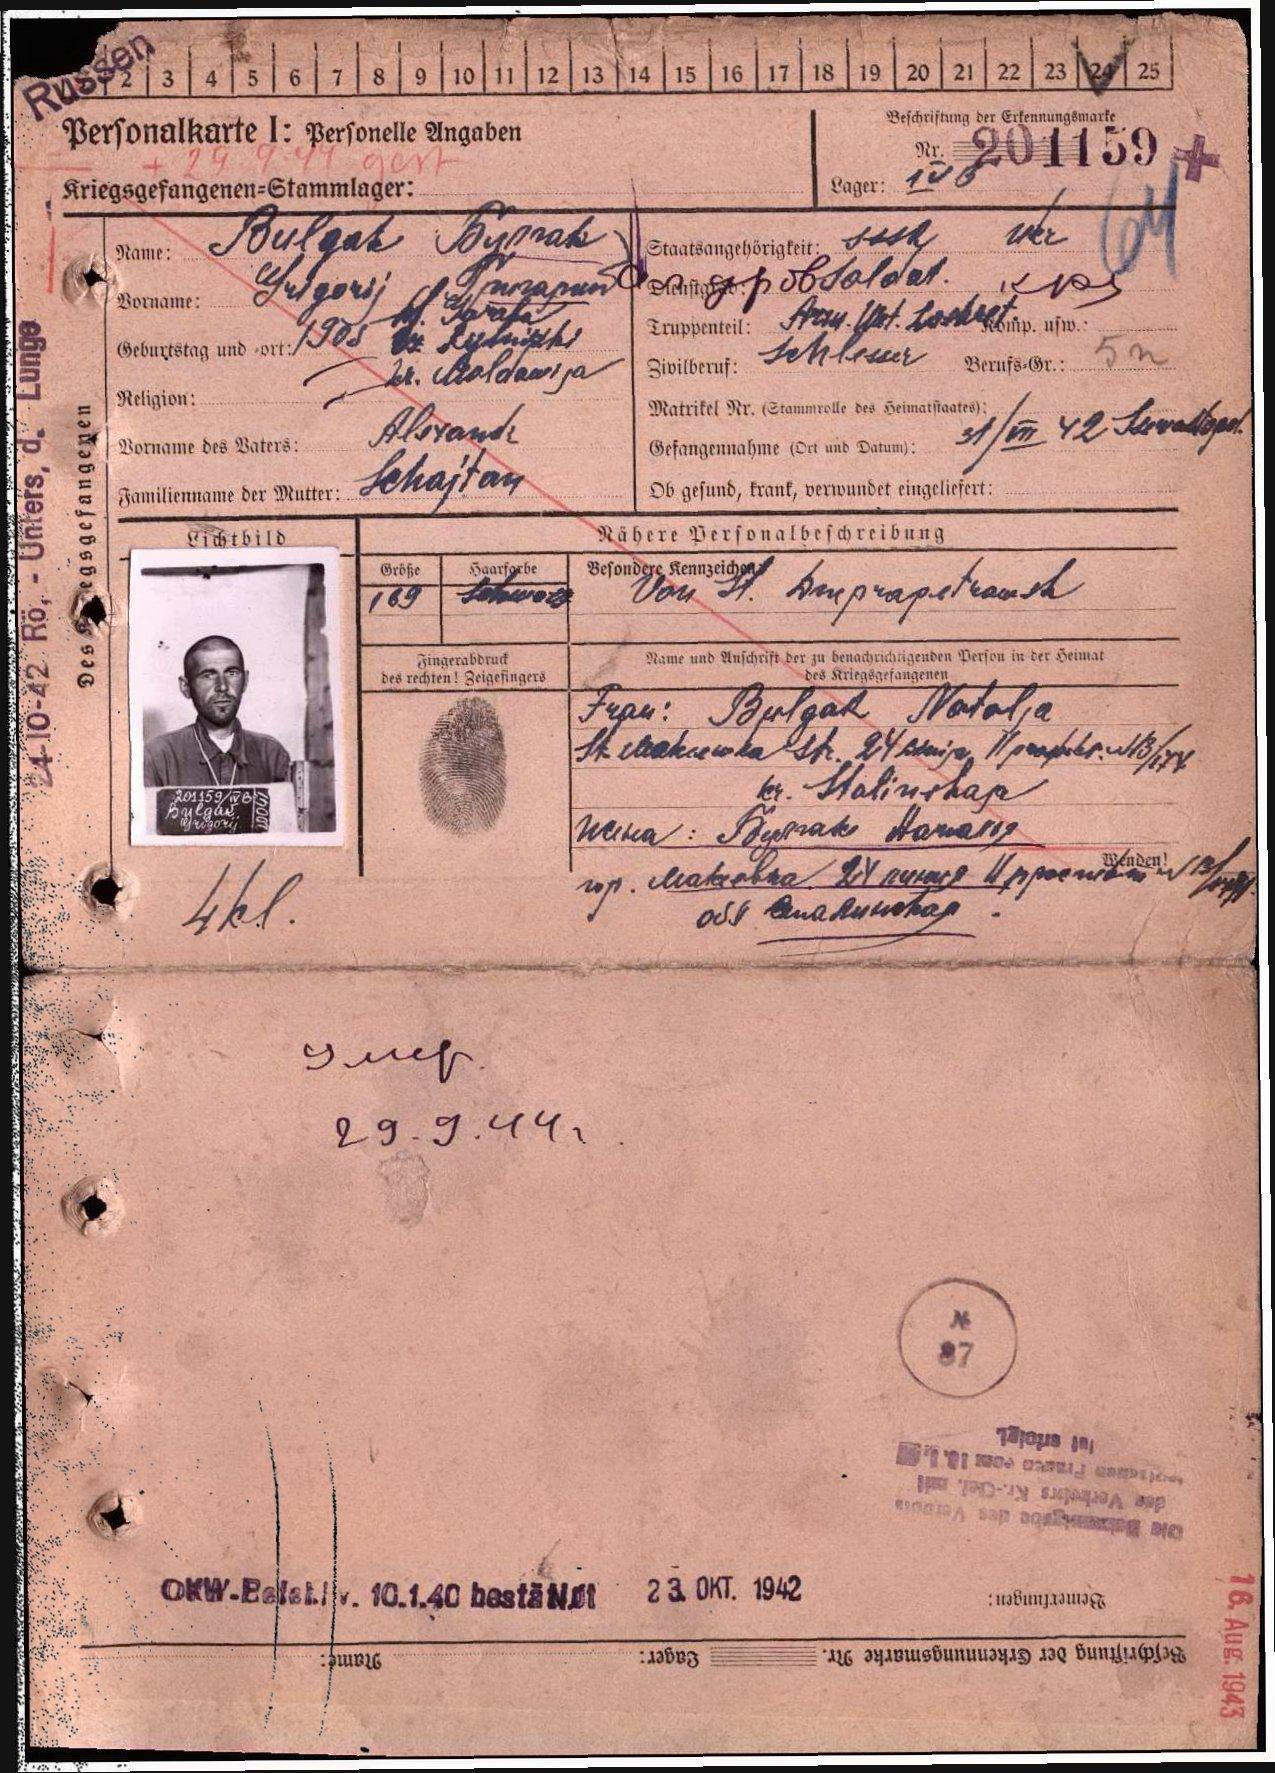 Russen
2 3 4 5 6 7 8 9 10 11 12 13 14 15 16 17 18 19 20 21 22 23 24 25
Personalkarte I: Personelle Angaben
Beschriftung der Erkennungsmarke
Nr. 201159
+ 29.9.44 gest
Kriegsgefangenen-Stammlager:
Lager: IV B
64
Name: Bulgak Булгак
Staatsangehörigkeit: SSSR Ukr
Vorname: Grigorij Григорий
Dienstgrad: Soldat.
Geburtstag und -ort: 1905
kr. Moldawija
Truppenteil:
Komp. usw.:
Zivilberuf: Schlesser
Berufs-Gr.: 5n
Religion:
Matrikel Nr. (Stammrolle des Heimatstaates):
Vorname des Vaters: Alexandr
Gefangennahme (Ort und Datum): 31/VII 42 Sewastopol.
Familienname der Mutter: Schajtan
Ob gesund, krank, verwundet eingeliefert:
Des Kriegsgefangenen
24-10-42 Rö,- Unters, d. Lunge
Lichtbild
Nähere Personalbeschreibung
Größe
Haarfarbe
Besondere Kennzeichen:
169
Schwarz
Von St. Dnepropetrowsk
201159/IVB
Bulgak
Grigorij
Fingerabdruck
des rechten! Zeigefingers
Name und Anschrift der zu benachrichtigenden Person in der Heimat
des Kriegsgefangenen
Frau: Bulgak Natalja
St. Makeewka Str. 24 linija, II
kr. Stalinskaja
жена: Булгак Наталія
Wenden!
гор. Макеевка 24 линия II проспект
обл Сталинская.
4 kl.
умер.
29.9.44г.
№
87
Die Bekanntgabe des Verbots
des Verkehrs Kr.-Gef. mit
deutschen Frauen vom 10.1.40
ist erfolgt
OKW-Befehl v. 10.1.40 bestätigt
23. OKT. 1942
Bemerkungen:
Beschriftung der Erkennungsmarke Nr. Lager: Name:
16. Aug. 1943